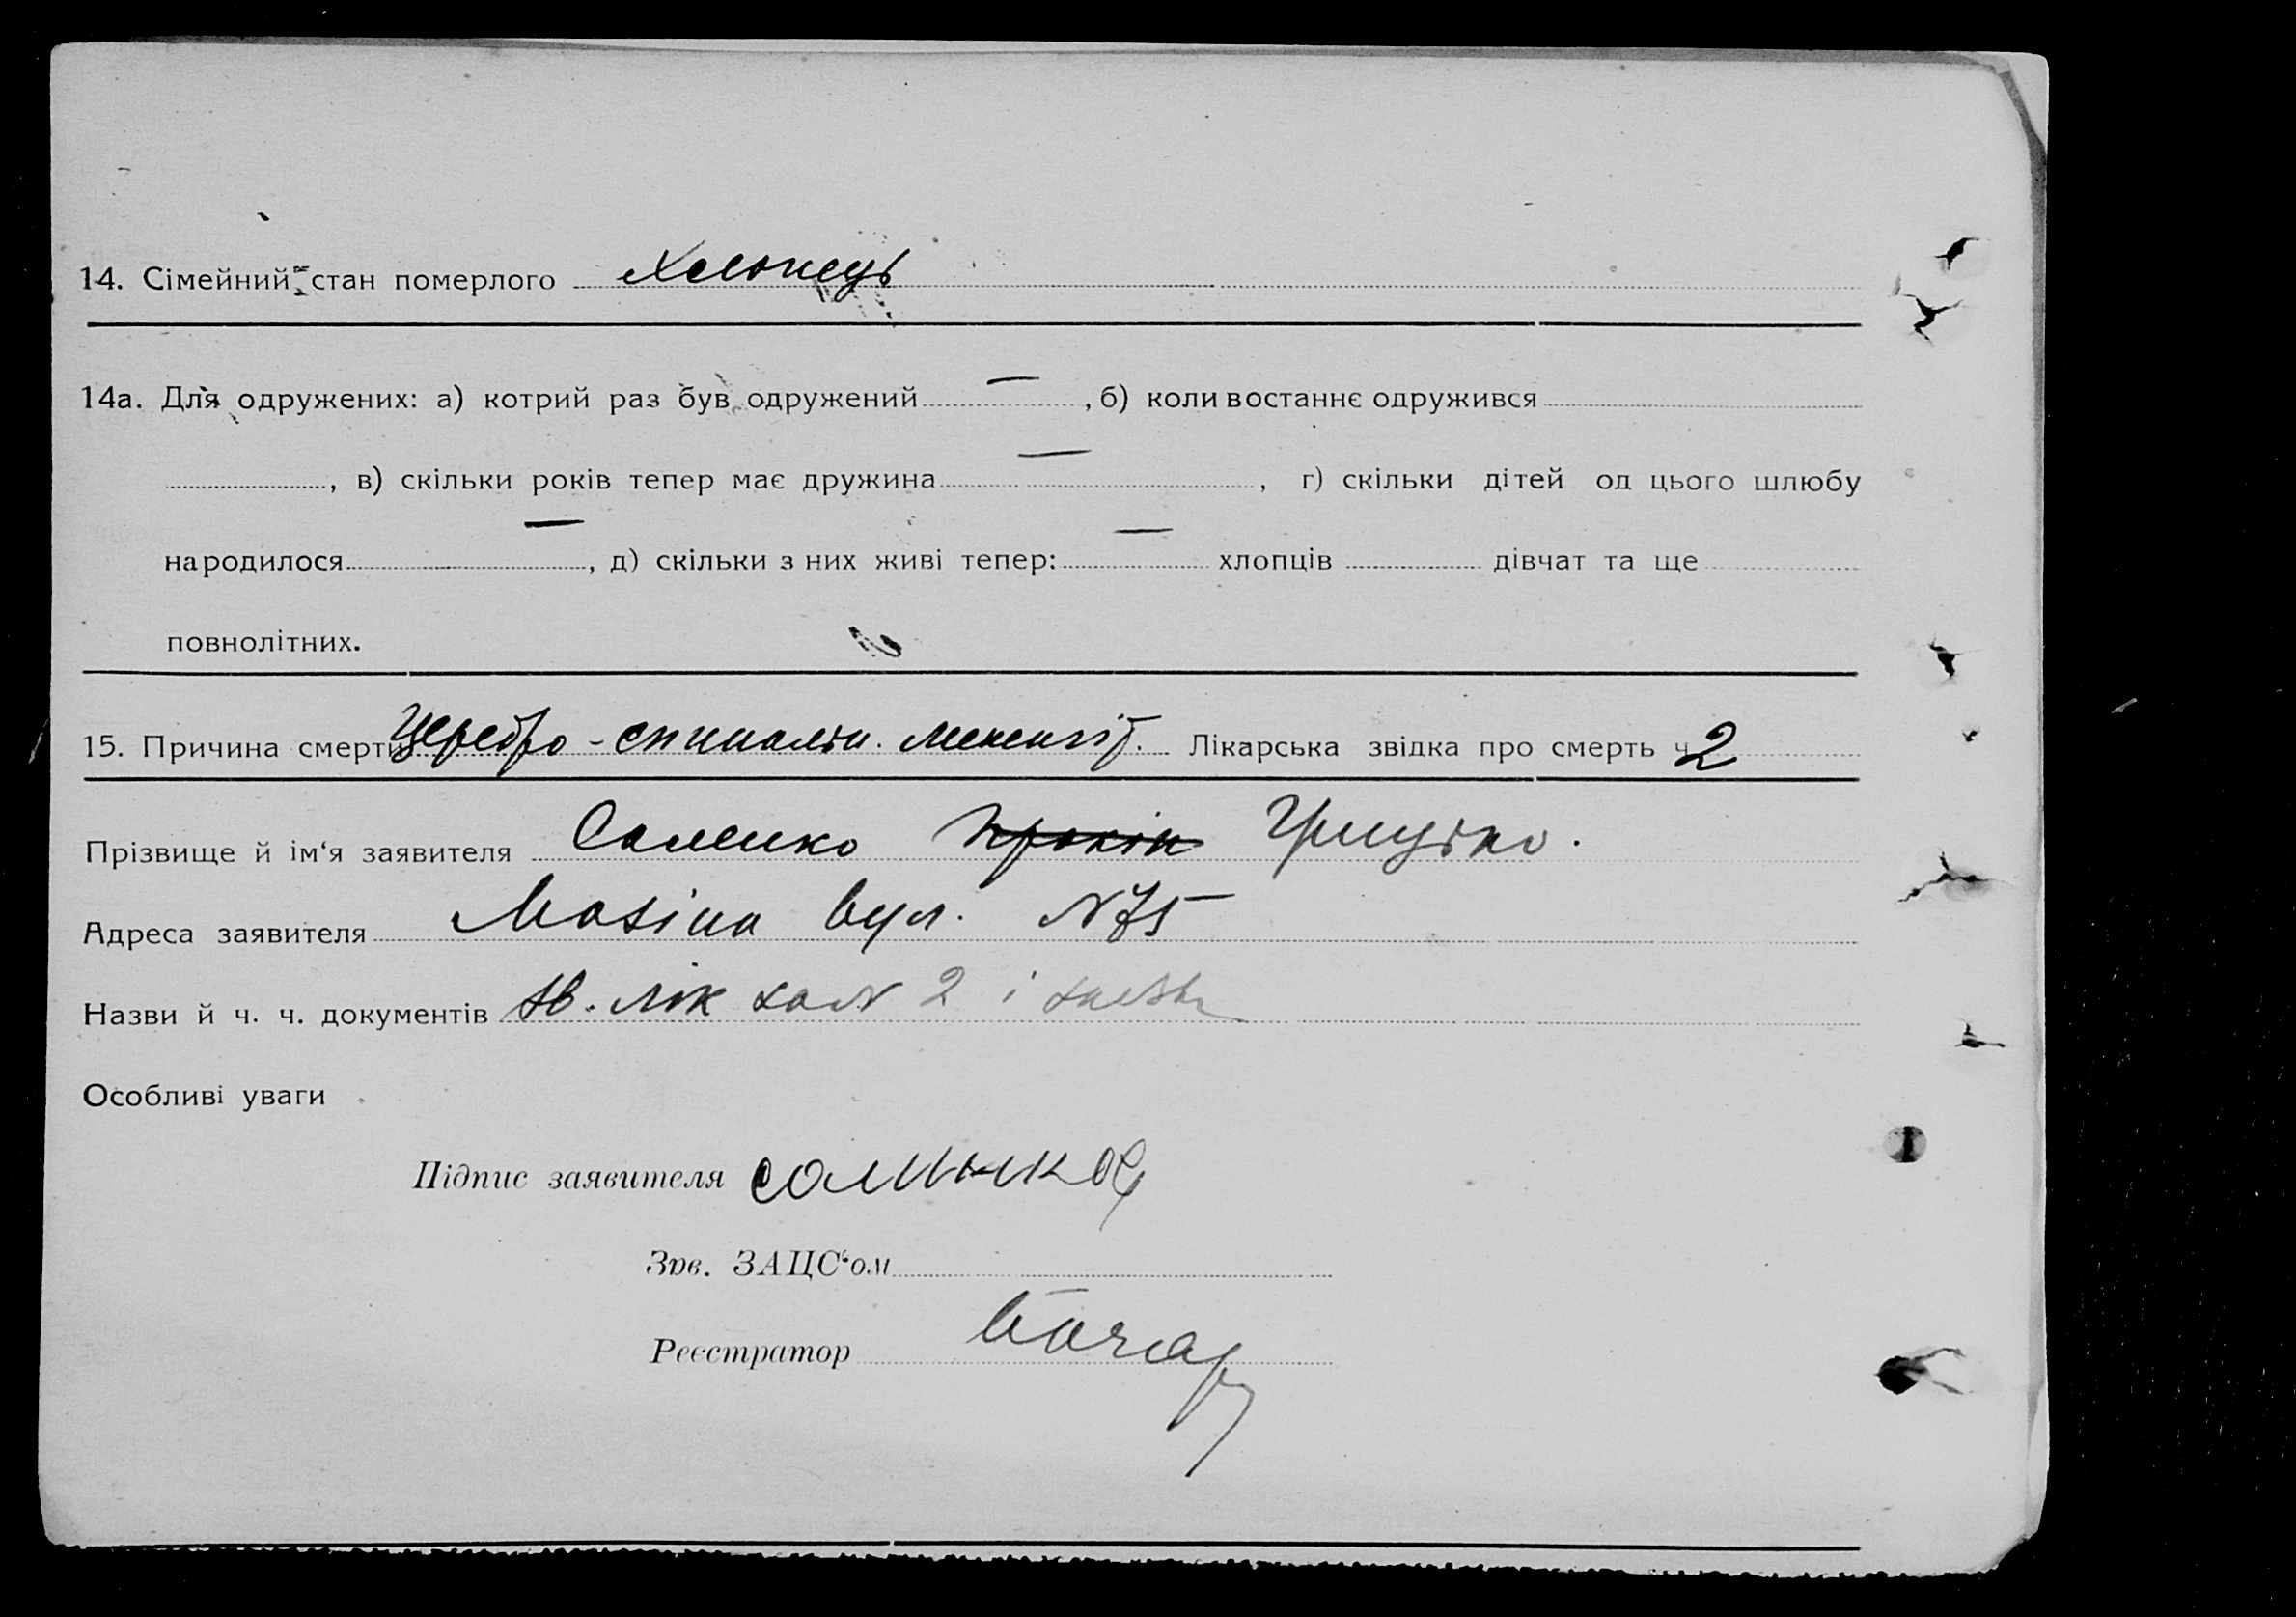 14. Сімейний стан померлого Хлопець
14а. Для одружених: а) котрий раз був одружений — , б) коли востаннє одружився
, в) скільки років тепер має дружина — , г) скільки дітей од цього шлюбу
народилося — , д) скільки з них живі тепер: — хлопців дівчат та ще
повнолітних.
15. Причина смерти Церебро-спинальн. менингіт. Лікарська звідка про смерть ч. 2
Прізвище й ім‘я заявителя Саленко
Адреса заявителя вул. N 75
Назви й ч. ч. документів лік 2 і
Особливі уваги
Підпис заявителя
Зав. ЗАЦС‘ом
Реєстратор Бочар